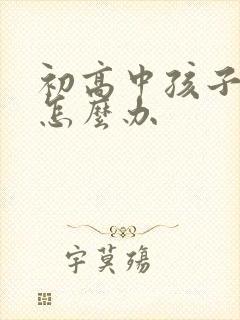 初高中孩子
怎麼办
字莫殤